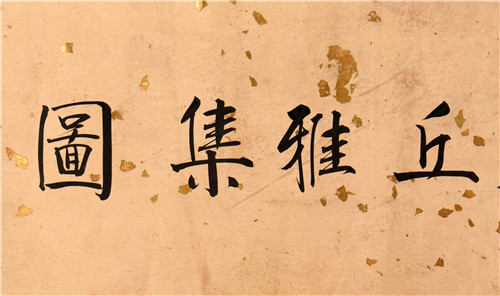 丘雅集圖